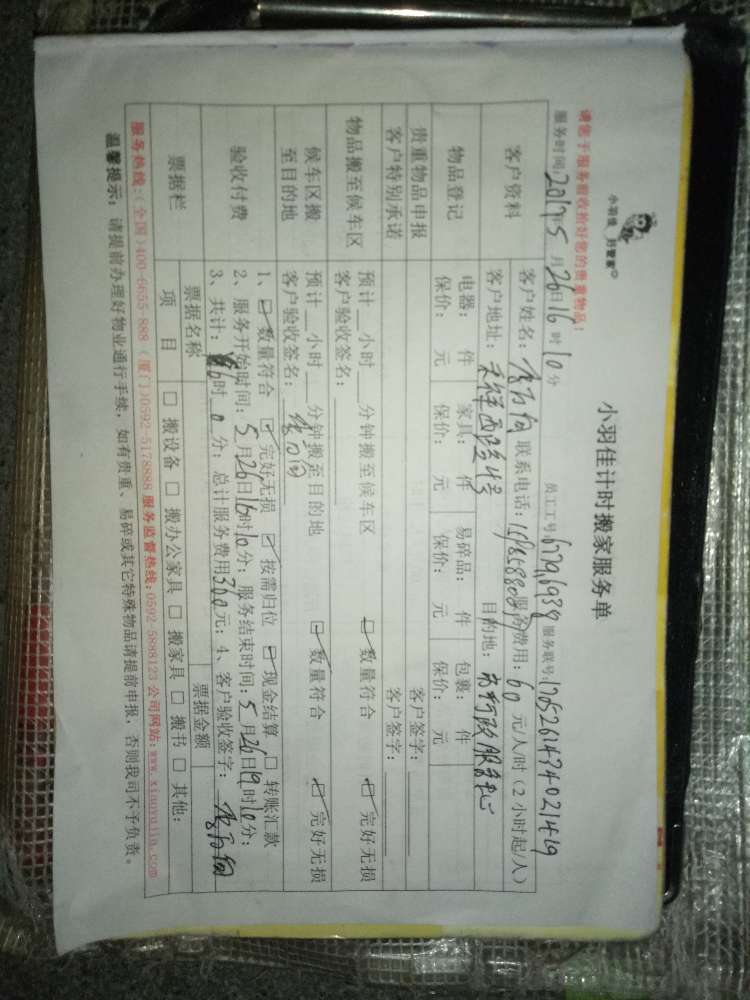 小羽佳 好管家
小羽佳计时搬家服务单
请您于服务前收拾好您的贵重物品！
员工工号6779,6938 服务联号:
服务时间:2019年5月26日16时10分
客户资料 客户姓名： 联系电话： 服务费用：60元/人/时（2小时起/人）
客户地址： 目的地：市行政服务中心
物品登记 电器： 件 家具： 件 易碎品： 件 包裹： 件
保价： 元 保价： 元 保价： 元 保价： 元
贵重物品申报 客户签字：
客户特别承诺 客户签字：
物品搬至候车区 预计__小时__分钟搬至候车区 ☑数量符合 ☑完好无损
客户验收签名：
候车区搬至目的地 预计__小时__分钟搬至目的地 ☑数量符合 ☑完好无损
客户验收签名：
验收付费 1、☑数量符合 ☑完好无损 ☑按需归位 ☑现金结算 □转账汇款
2、服务开始时间：5月26日16时10分；服务结束时间：5月26日19时10分；
3、共计：6时0分；总计服务费用360元；4、客户验收签字：
票据栏 票据名称 票据金额
项目 □搬设备 □搬办公家具 □搬家具 □搬书 □其他：
服务热线:(全国)400-6655-888 (厦门)0592-5178888 服务监督热线:0592-5888123 公司网站:www.xiaoyujia.com
温馨提示：请提前办理好物业通行手续，如有贵重、易碎或其它特殊物品请提前申报，否则我司不予负责。